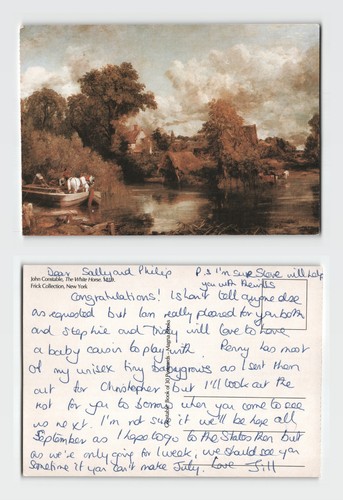 John Constable, The White Horse, 1819.
Frick Collection, New York
Dear Sally and Philip
P.S I'm sure Steve will help
you with
Congratulations! I shan't tell anyone else
as requested but I am really pleased for you both
and Stephie and will love to have
a baby cousin to play with. Penny has most
of my unisex tiny babygrows as I sent them
out for Christopher but I'll look out the
rest for you to borrow when you come to see
us next. I'm not sure if we'll be here all
September as I hope to go to the States then but
as we're only going for 1 week, we should see you
sometime if you can't make July. Love Jill